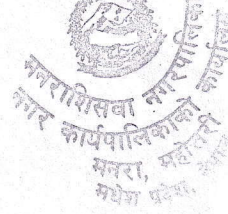 मनराशिसवा नगरपालिका
नगर कार्यपालिकाको कार्यालय
मनरा, महोत्तरी
मधेश प्रदेश,